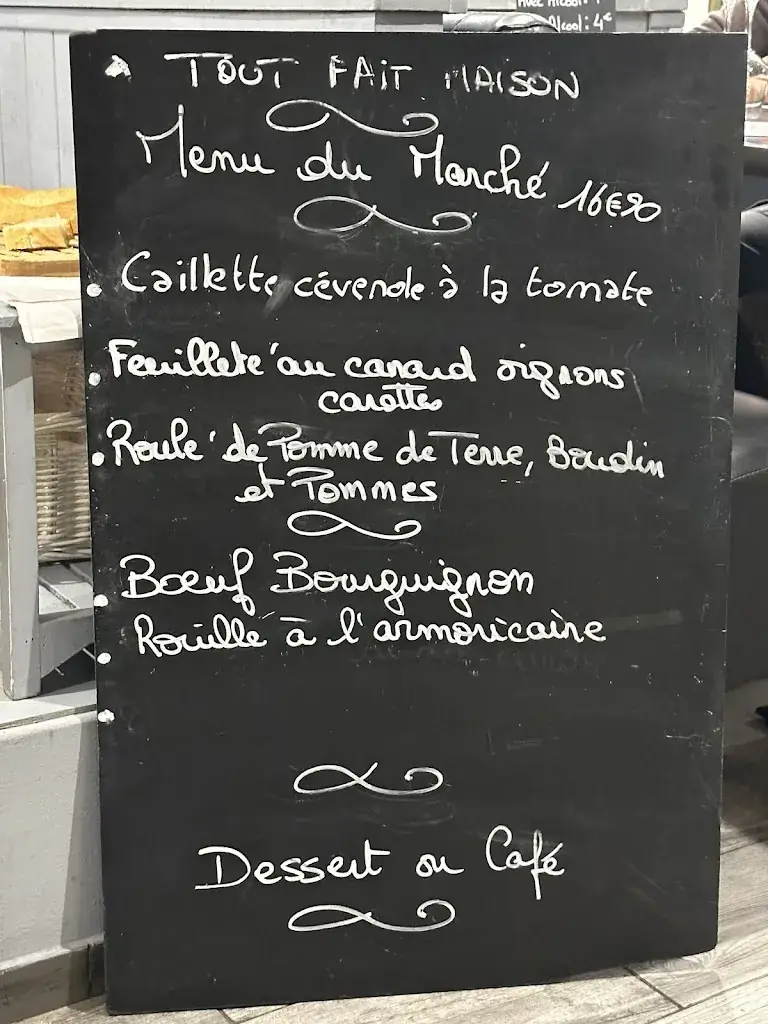 Avec Alcool: 4
Alcool: 4€
TOUT FAIT MAISON
Menu du Marché 16€90
Caillette cévenole à la tomate
Feuilleté au canard oignons
carottes
Roulé de Pomme de Terre, Boudin
et Pommes
Bœuf Bourguignon
Rouille à l'armoricaine
Dessert ou Café